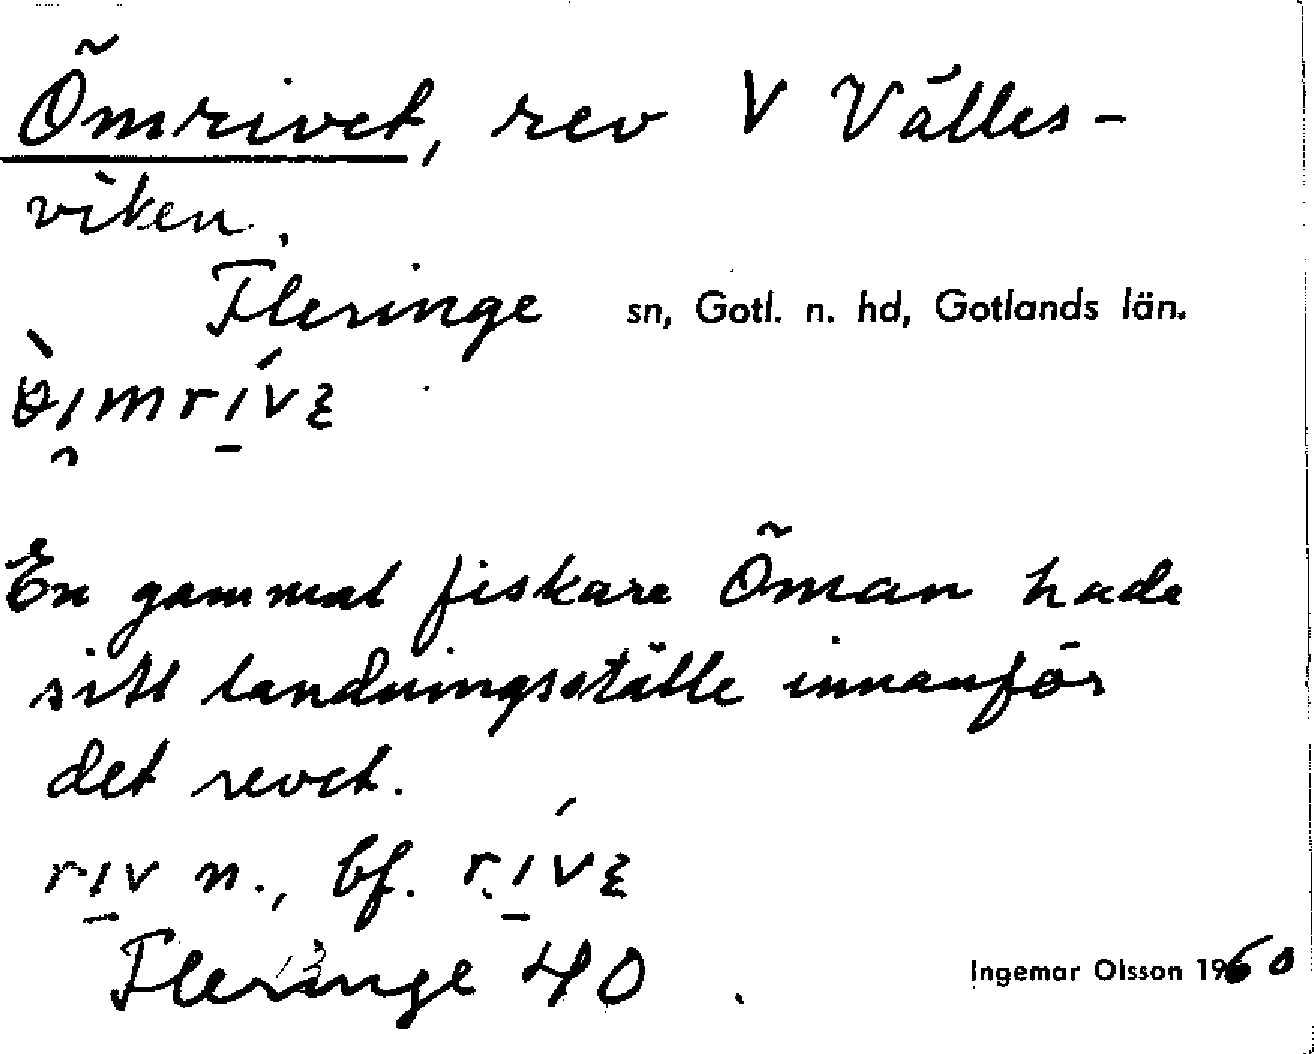 Õmrivet, rev V Välles-
viken.
Fleringe sn, Gotl. n. hd, Gotlands län.
En gammal fiskare Õman hade
sitt landningsställe innanför
det revet.
rɪv n., bf. rɪ́vɛ
Fleringe 40
Ingemar Olsson 1960